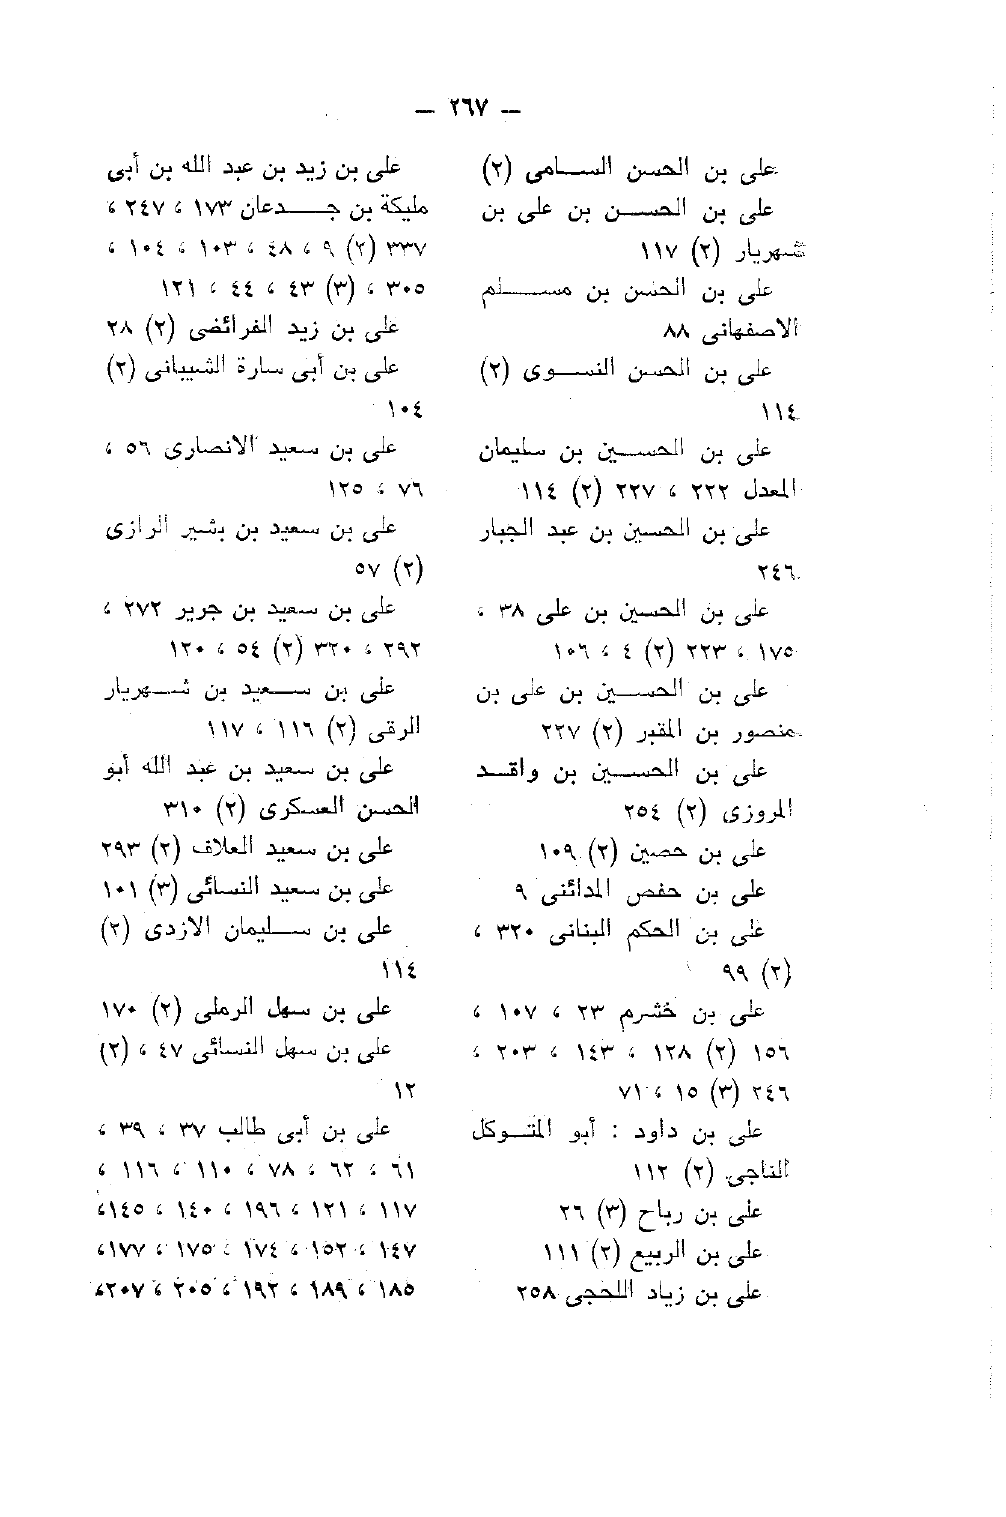 — ٢٦٧ —
على بن الحسن السامى (٢)
على بن الحسن بن على بن
شهريار (٢) ١١٧
على بن الحسن بن مسلم
الاصفهانى ٨٨
على بن الحسن النسوى (٢)
١١٤
على بن الحسين بن سليمان
المعدل ٢٢٢ ، ٢٢٧ (٢) ١١٤
على بن الحسين بن عبد الجبار
٢٤٦
على بن الحسين بن على ٣٨ ،
١٧٥ ، ٢٢٣ (٢) ٤ ، ١٠٦
على بن الحسين بن على بن
منصور بن المقبر (٢) ٢٢٧
على بن الحسين بن واقد
المروزى (٢) ٢٥٤
على بن حصين (٢) ١٠٩
على بن حفص المدائنى ٩
على بن الحكم البنانى ٣٢٠ ،
(٢) ٩٩
على بن خشرم ٢٣ ، ١٠٧ ،
١٥٦ (٢) ١٢٨ ، ١٤٣ ، ٢٠٣ ،
٢٤٦ (٣) ١٥ ، ٧١
على بن داود : أبو المتوكل
الناجى (٢) ١١٢
على بن رباح (٣) ٢٦
على بن الربيع (٢) ١١١
على بن زياد اللحجى ٢٥٨
على بن زيد بن عبد الله بن أبى
مليكة بن جدعان ١٧٣ ، ٢٤٧ ،
٣٣٧ (٢) ٩ ، ٤٨ ، ١٠٣ ، ١٠٤ ،
٣٠٥ ، (٣) ٤٣ ، ٤٤ ، ١٢١
على بن زيد الفرائضى (٢) ٢٨
على بن أبى سارة الشيبانى (٢)
١٠٤
على بن سعيد الانصارى ٥٦ ،
٧٦ ، ١٢٥
على بن سعيد بن بشير الرازى
(٢) ٥٧
على بن سعيد بن جرير ٢٧٢ ،
٢٩٢ ، ٣٢٠ (٢) ٥٤ ، ١٢٠
على بن سعيد بن شهريار
الرقى (٢) ١١٦ ، ١١٧
على بن سعيد بن عبد الله أبو
الحسن العسكرى (٢) ٣١٠
على بن سعيد العلاف (٢) ٢٩٣
على بن سعيد النسائى (٣) ١٠١
على بن سليمان الازدى (٢)
١١٤
على بن سهل الرملى (٢) ١٧٠
على بن سهل النسائى ٤٧ ، (٢)
١٢
على بن أبى طالب ٣٧ ، ٣٩ ،
٦١ ، ٦٢ ، ٧٨ ، ١١٠ ، ١١٦ ،
١١٧ ، ١٢١ ، ١٩٦ ، ١٤٠ ، ١٤٥،
١٤٧ ، ١٥٢ ، ١٧٤ ، ١٧٥ ، ١٧٧،
١٨٥ ، ١٨٩ ، ١٩٢ ، ٢٠٥ ، ٢٠٧،